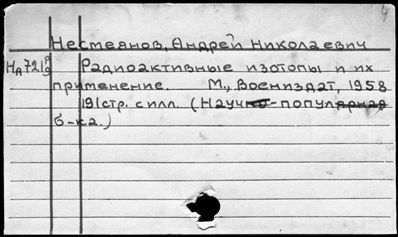 Несмеянов, Андрей Николаевич
Радиоактивные изотопы и их
применение. М., Воениздат, 1958
191стр. с илл. (Научно-популярная
б-ка.)